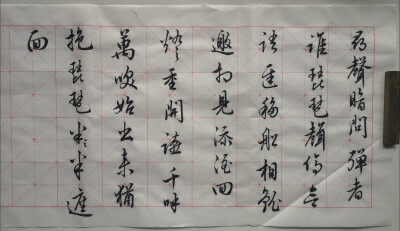 尋聲暗問彈者
誰琵琶聲停欲
語遲移船相近
邀相見添酒回
燈重開讌千呼
萬喚始出來猶
抱琵琶半半遮
面